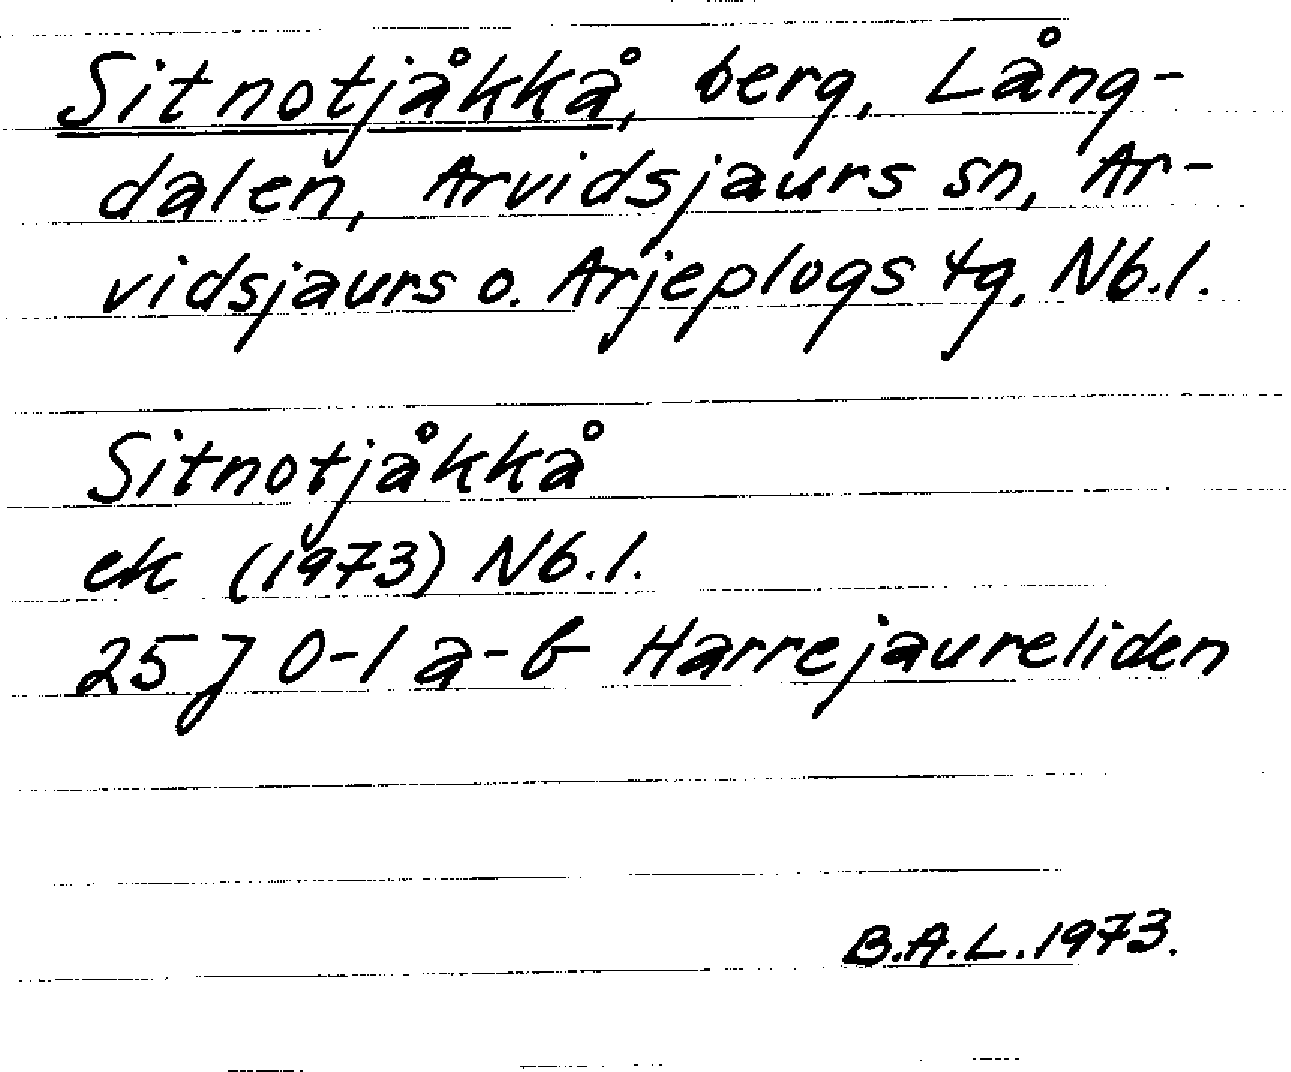 Sitnotjåkkå, berg, Lång-
dalen, Arvidsjaurs sn, Ar-
vidsjaurs o. Arjeplogs tg, Nb.l.
Sitnotjåkkå
ek (1973) Nb.l.
25 J 0-1 a-b Harrejaureliden
B.A.L. 1973.